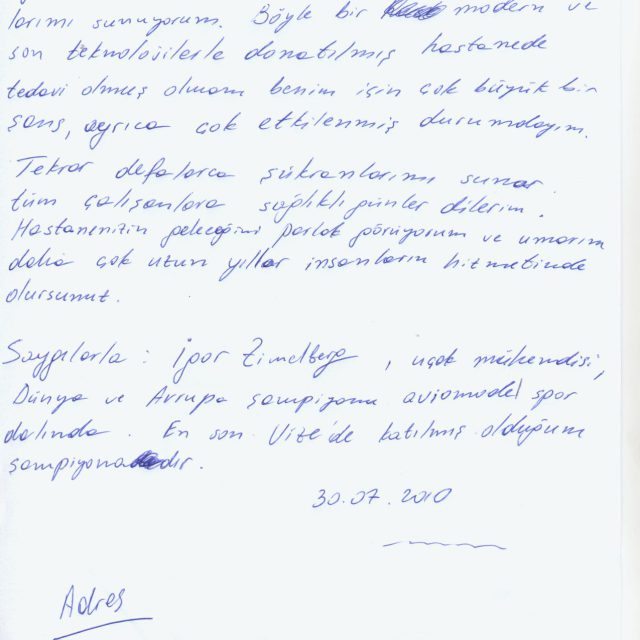 larımı sunuyorum. Böyle bir modern ve
son teknolojilerle donatılmış hastanede
tedavi olmuş olmam benim için çok büyük bir
şans, ayrıca çok etkilenmiş durumdayım.
Tekrar defalarca şükranlarımı sunar
tüm çalışanlara sağlıklı günler dilerim.
Hastanenizin geleceğini parlak görüyorum ve umarım
daha çok uzun yıllar insanların hizmetinde
olursunuz.
Saygılarla : Igor Zimelberg, uçak mühendisi,
Dünya ve Avrupa şampiyonu aviomodel spor
dalında. En son Vize'de katılmış olduğum
şampiyonadır.
30.07.2010
Adres